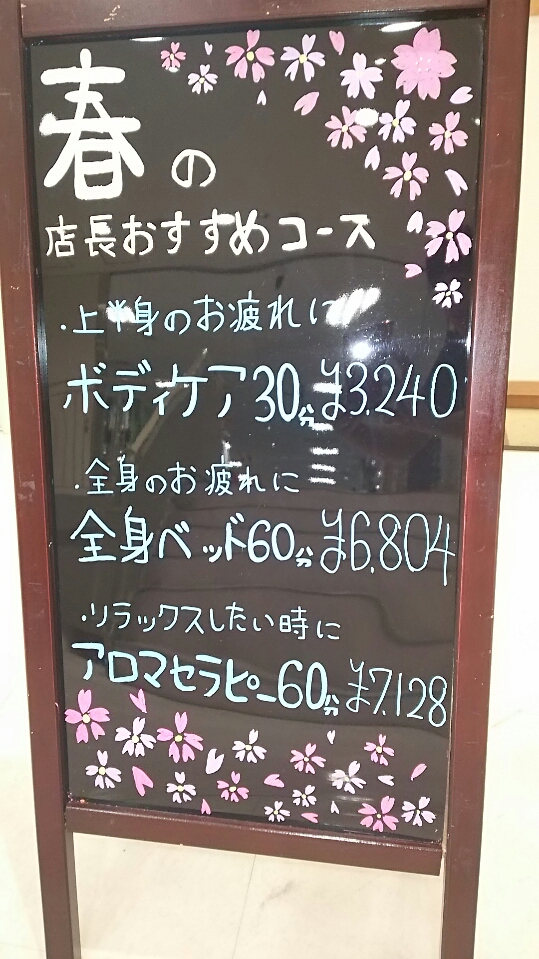 春の
店長おすすめコース
・上半身のお疲れに
ボディケア30分 ¥3,240
・全身のお疲れに
全身ベッド60分 ¥6,804
・リラックスしたい時に
アロマセラピー60分 ¥7,128